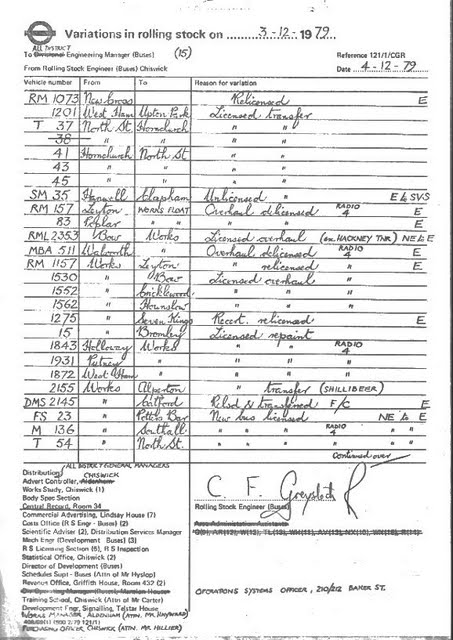 Variations in rolling stock on 3-12-1979
ALL DISTRICT
To Divisional Engineering Manager (Buses) (15) Reference 121/1/CGR
From Rolling Stock Engineer (Buses) Chiswick Date 4-12-79
Vehicle number From To Reason for variation
RM 1073 New Cross Relicensed E
1201 West Ham Upton Park Licensed transfer
T 37 North St Hornchurch " "
38 " " " "
41 Hornchurch North St " "
43 " " " "
45 " " " "
SM 35 Hanwell Clapham Unlicensed " E & SVS
RM 157 Leyton WORKS FLOAT Overhaul delicensed RADIO 4 E
83 Poplar " " " " E
RML 2353 Bow Works Licensed overhaul (on HACKNEY TNR) NE & E
MBA 511 Walworth " Overhaul delicensed RADIO 4 E
RM 1157 Works Leyton " relicensed E
1530 " Bow Licensed overhaul
1552 " Cricklewood " "
1562 " Hounslow " "
1275 " Seven Kings Recert. relicensed E
15 " Bromley Licensed repaint
1843 Holloway Works " " RADIO 4
1931 Putney " " "
1872 West Ham " " "
2155 Works Alperton " transfer (SHILLIBEER)
DMS 2145 " Catford Relsd & transferred F/C E
FS 23 " Potters Bar New bus licensed NE & E
M 136 " Southall " " " RADIO 4 " "
T 54 " North St. " " " " "
Continued over
ALL DISTRICT GENERAL MANAGERS
Distribution: CHISWICK
Advert Controller, Aldenham
Works Study, Chiswick (1)
Body Spec Section
Central Record, Room 34
Commercial Advertising, Lindsay House (7)
Costs Office (R S Engr - Buses) (2)
Scientific Adviser (2), Distribution Services Manager
Mech Engr (Development - Buses) (3)
R S Licensing Section (5), R S Inspection
Statistical Office, Chiswick (2)
Director of Development (Buses)
Schedules Supt - Buses (Attn of Mr Hyslop)
Revenue Office, Griffith House, Room 432 (2)
Training School, Chiswick (Attn of Mr Carter)
Development Engr, Signalling, Telstar House
WORKS MANAGER, ALDENHAM (ATTN. MR. HAYWARD)
PURCHASING OFFICER, CHISWICK (ATTN. MR. HILLIER)
C. F.
Rolling Stock Engineer (Buses)
Area Administration Assistants
OPERATIONS SYSTEMS OFFICER, 210/212 BAKER ST.